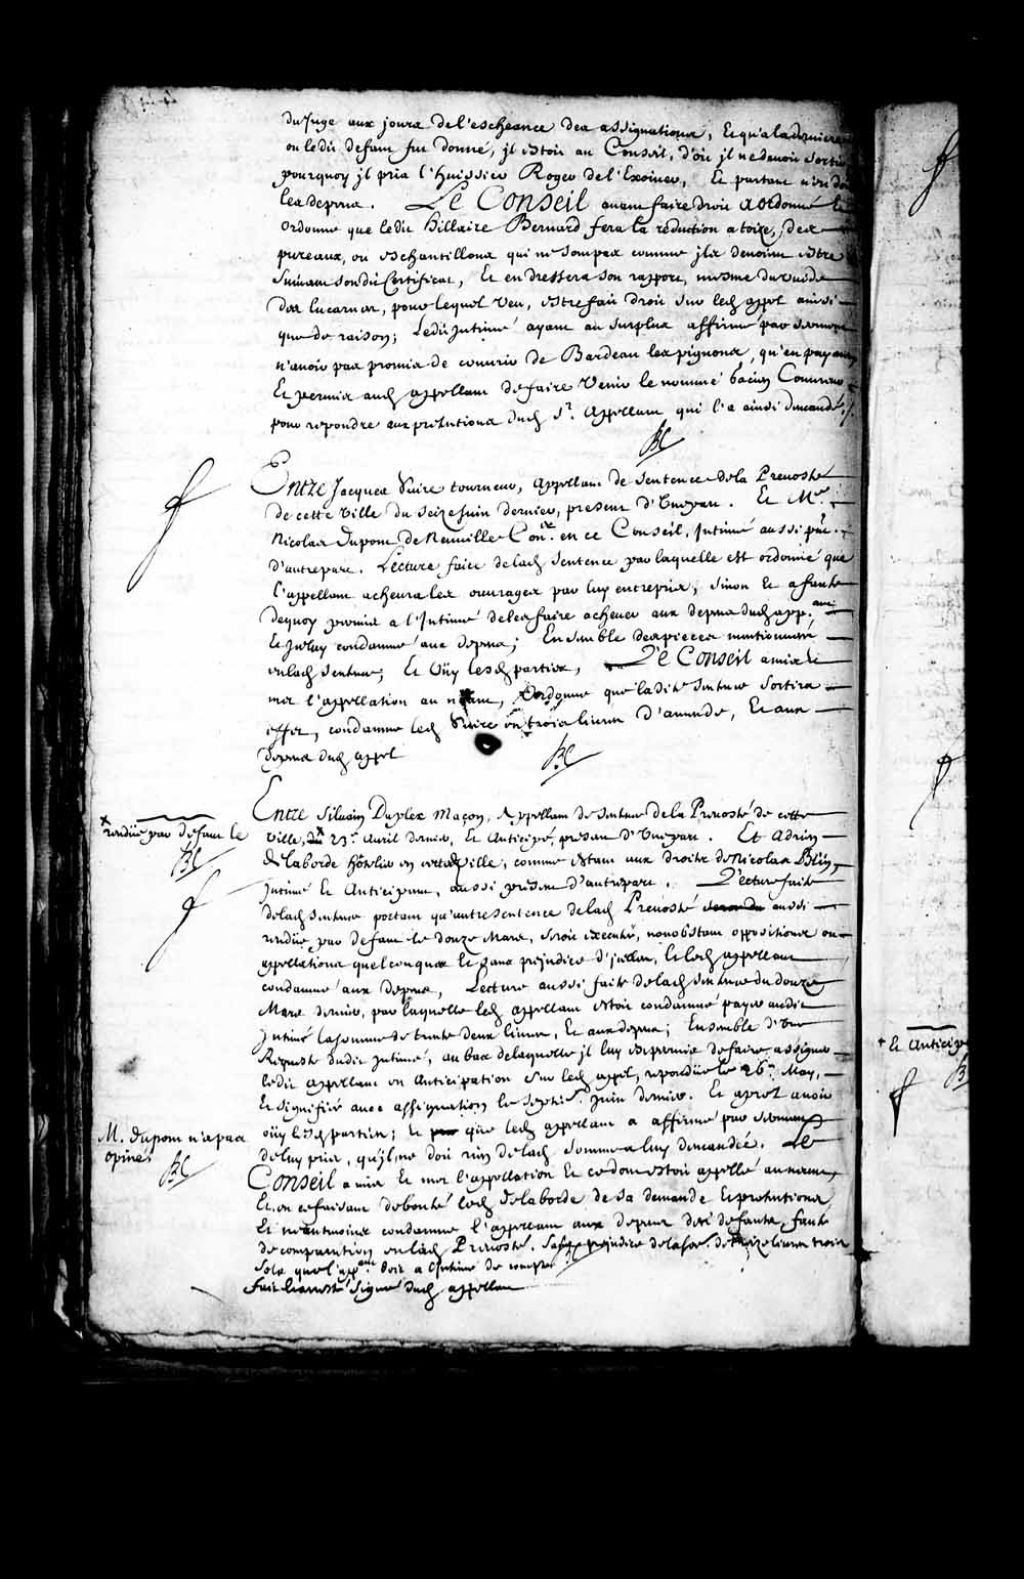 du Juge aux jours de l'escheance des assignations, Et qu'a la derniere
ou ledit defaut fut donné, jl estoit au Conseil, d'où jl ne devoit sortir
pourquoy jl pria l'huissier Roger de l'Exoiner, Et partant n'en doit
les depens. Le Conseil avant faire droit a ordonné et
ordonne que ledit hillaire Bernard fera la reduction a toize, des
pureaux, ou eschantillons qui ne sont pas comme jls devoient estre
suivant son dit Certificat, Et en dressera son rapport, mesme du vuide
des lucarnes, pour lequel veu, estre fait droit sur led. appel ainsi
que de raison; ledit Intimé ayant au surplus affirmé par serment
n'avoir pas promis de couvrir de Bardeau les pignons, qu'en payant
Et permis aud. appellant de faire venir le nommé Couvreur
pour repondre aux pretentions dud. Sr. appellant qui l'a ainsi demandé
Entre Jacques Suire tourneur, appellant de sentence de la Prevosté
de cette ville du seize Juin dernier, present d'Une part. Et Me.
Nicolas Dupont de Neuville Coner. en ce Conseil, Intimé aussi pnt.
d'autre part. Lecture faite de lad. sentence par laquelle est ordonné que
l'appellant achevra les ouvrages par luy entrepris, sinon Et a faute
dequoy permis a l'Intimé de les faire achever aux depens dud. app.ant
Et Iceluy condamné aux depens; Ensemble des pieces mentionnées
en lad. sentence; Et Oüy lesd. parties, Le Conseil a mis et
met l'appellation au neant, Ordonne que ladite sentence sortira
effet, condamne led. Suire en trois livres d'amende, Et aux
depens dud. appel
Entre Silvain Duplex Maçon, Appellant de sentence de la Prevosté de cette
ville, du 23e. avril dernier, Et Anticipé, present d'Une part. Et Adrien
de laborde hôtelier en cette ville, comme estant aux droits de Nicolas Blin,
Intimé Et Anticipant, aussi present d'autre part. Lecture faite
de lad. sentence portant qu'autre sentence de lad. Prevosté aussi
rendüe par defaut le douze Mars, seroit executée, nonobstant oppositions ou
appellations quelconques Et sans prejudice d'icelles, Et led. appellant
condamné aux depens, Lecture aussi faite de lad. sentence du douze
Mars dernier, par laquelle led. appellant estoit condamné payer audit
Intimé la somme de trente deux livres, Et aux depens; Ensemble d'Une
Requeste dudit Intimé, au bas de laquelle jl luy est permis de faire assigner
ledit appellant en Anticipation sur led. appel, repondüe le 26e. May,
Et signifié avec assignation le Septie. Juin dernier. Et aprés avoir
oüy lesd. parties; Et que led. appellant a affirmé par serment
de luy pris, qu'jl ne doit rien de lad. somme a luy demandée. Le
Conseil a mis Et met l'appellation Et ce dont estoit appellé au neant,
Et, en ce faisant debouté led. de laborde de sa demande Et pretentions,
Et neantmoins condamne l'appellant aux depens des defauts, faute
de comparution en lad. Prevosté. Sans prejudice de la somme de treize livres trois
sols que l'app.ant doit a l'Intimé de compte
fait Et arresté signé dud. appellant
* rendüe par defaut le
M. dupont n'a pas
opiné
+ Et anticipé